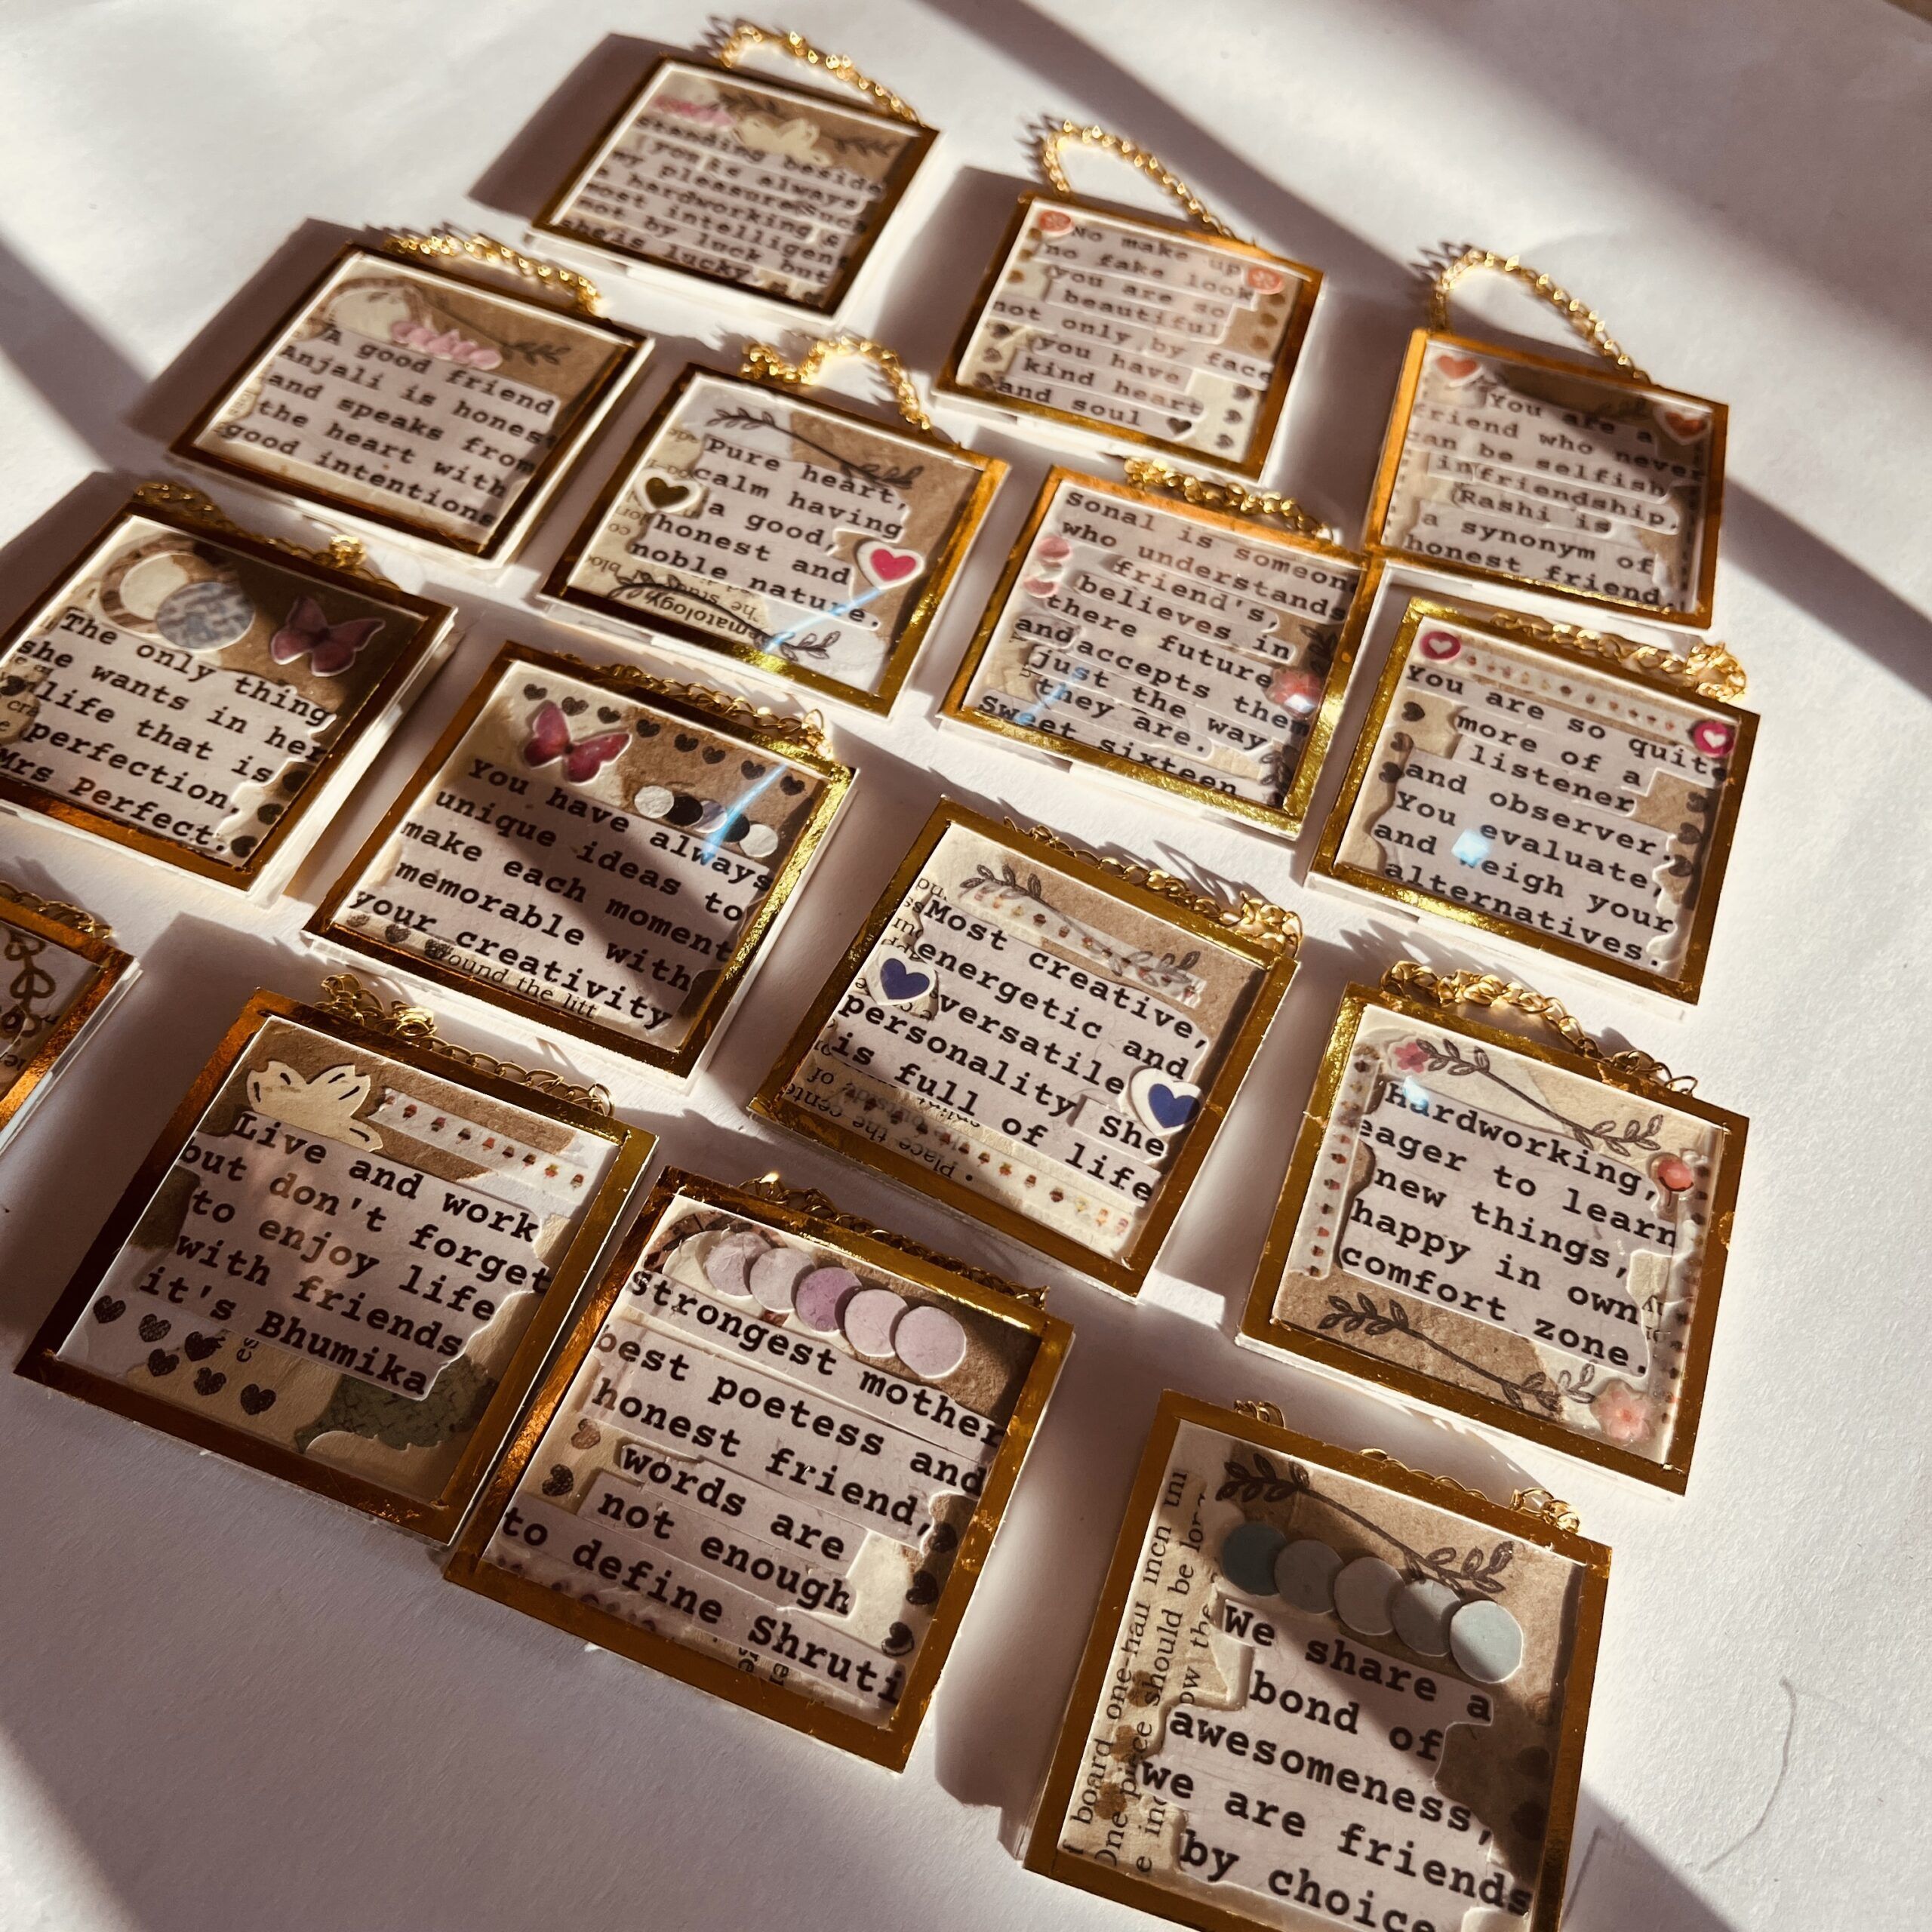 standing beside
you is always
my pleasure such
a hardworking &
most intelligent
not by luck but
she is lucky
No make up
no fake look
you are so
beautiful
not only by face
you have
kind heart
and soul
You are a
friend who never
can be selfish
in friendship,
Rashi is
a synonym of
honest friend
A good friend
Anjali is honest
and speaks from
the heart with
good intentions
Pure heart,
calm having
a good,
honest and
noble nature.
Sonal is someon
who understands
friend's,
believes in
there future
and accepts them
just the way
they are.
Sweet sixteen
You are so quite
more of a
listener
and observer.
You evaluate,
and weigh your
alternatives.
The only thing
she wants in her
life that is
perfection,
Mrs Perfect.
You have always
unique ideas to
make each moment
memorable with
your creativity
round the litt
Most creative,
energetic and
versatile
personality She
is full of life
place the cente
Hardworking,
eager to learn
new things,
happy in own
comfort zone.
Live and work
but don't forget
to enjoy life
with friends
it's Bhumika
Strongest mother
best poetess and
honest friend,
words are
not enough
to define Shruti
board one-half inch
One piece should be
We share a
bond of
awesomeness,
we are friends
by choice